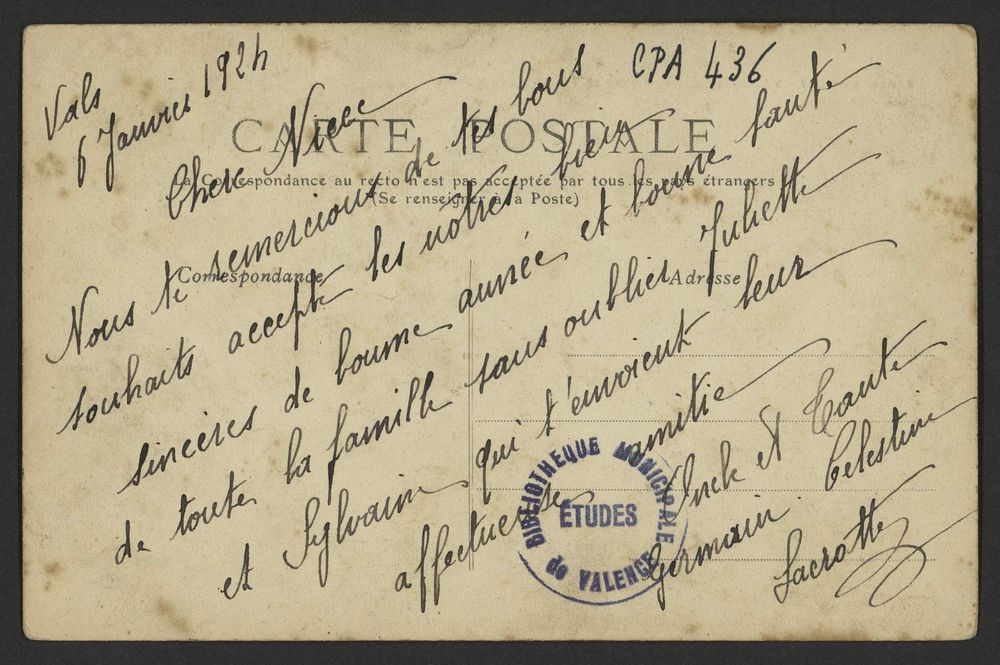 Vals
6 Janvier 1924
CPA 436
CARTE POSTALE
La Correspondance au recto n'est pas acceptée par tous les pays étrangers
(Se renseigner à la Poste)
Correspondance
Adresse
Chere Niece
Nous te remercions de tes bons
souhaits accepte les notres bien
sinceres de bonne année et bonne santé
de toute la famille sans oublier Juliette
et Sylvain qui t'envoient leur
affectueuse amitie
Oncle et Tante
Germain Celestine
Lacrotte
BIBLIOTHEQUE MUNICIPALE
ÉTUDES
de VALENCE